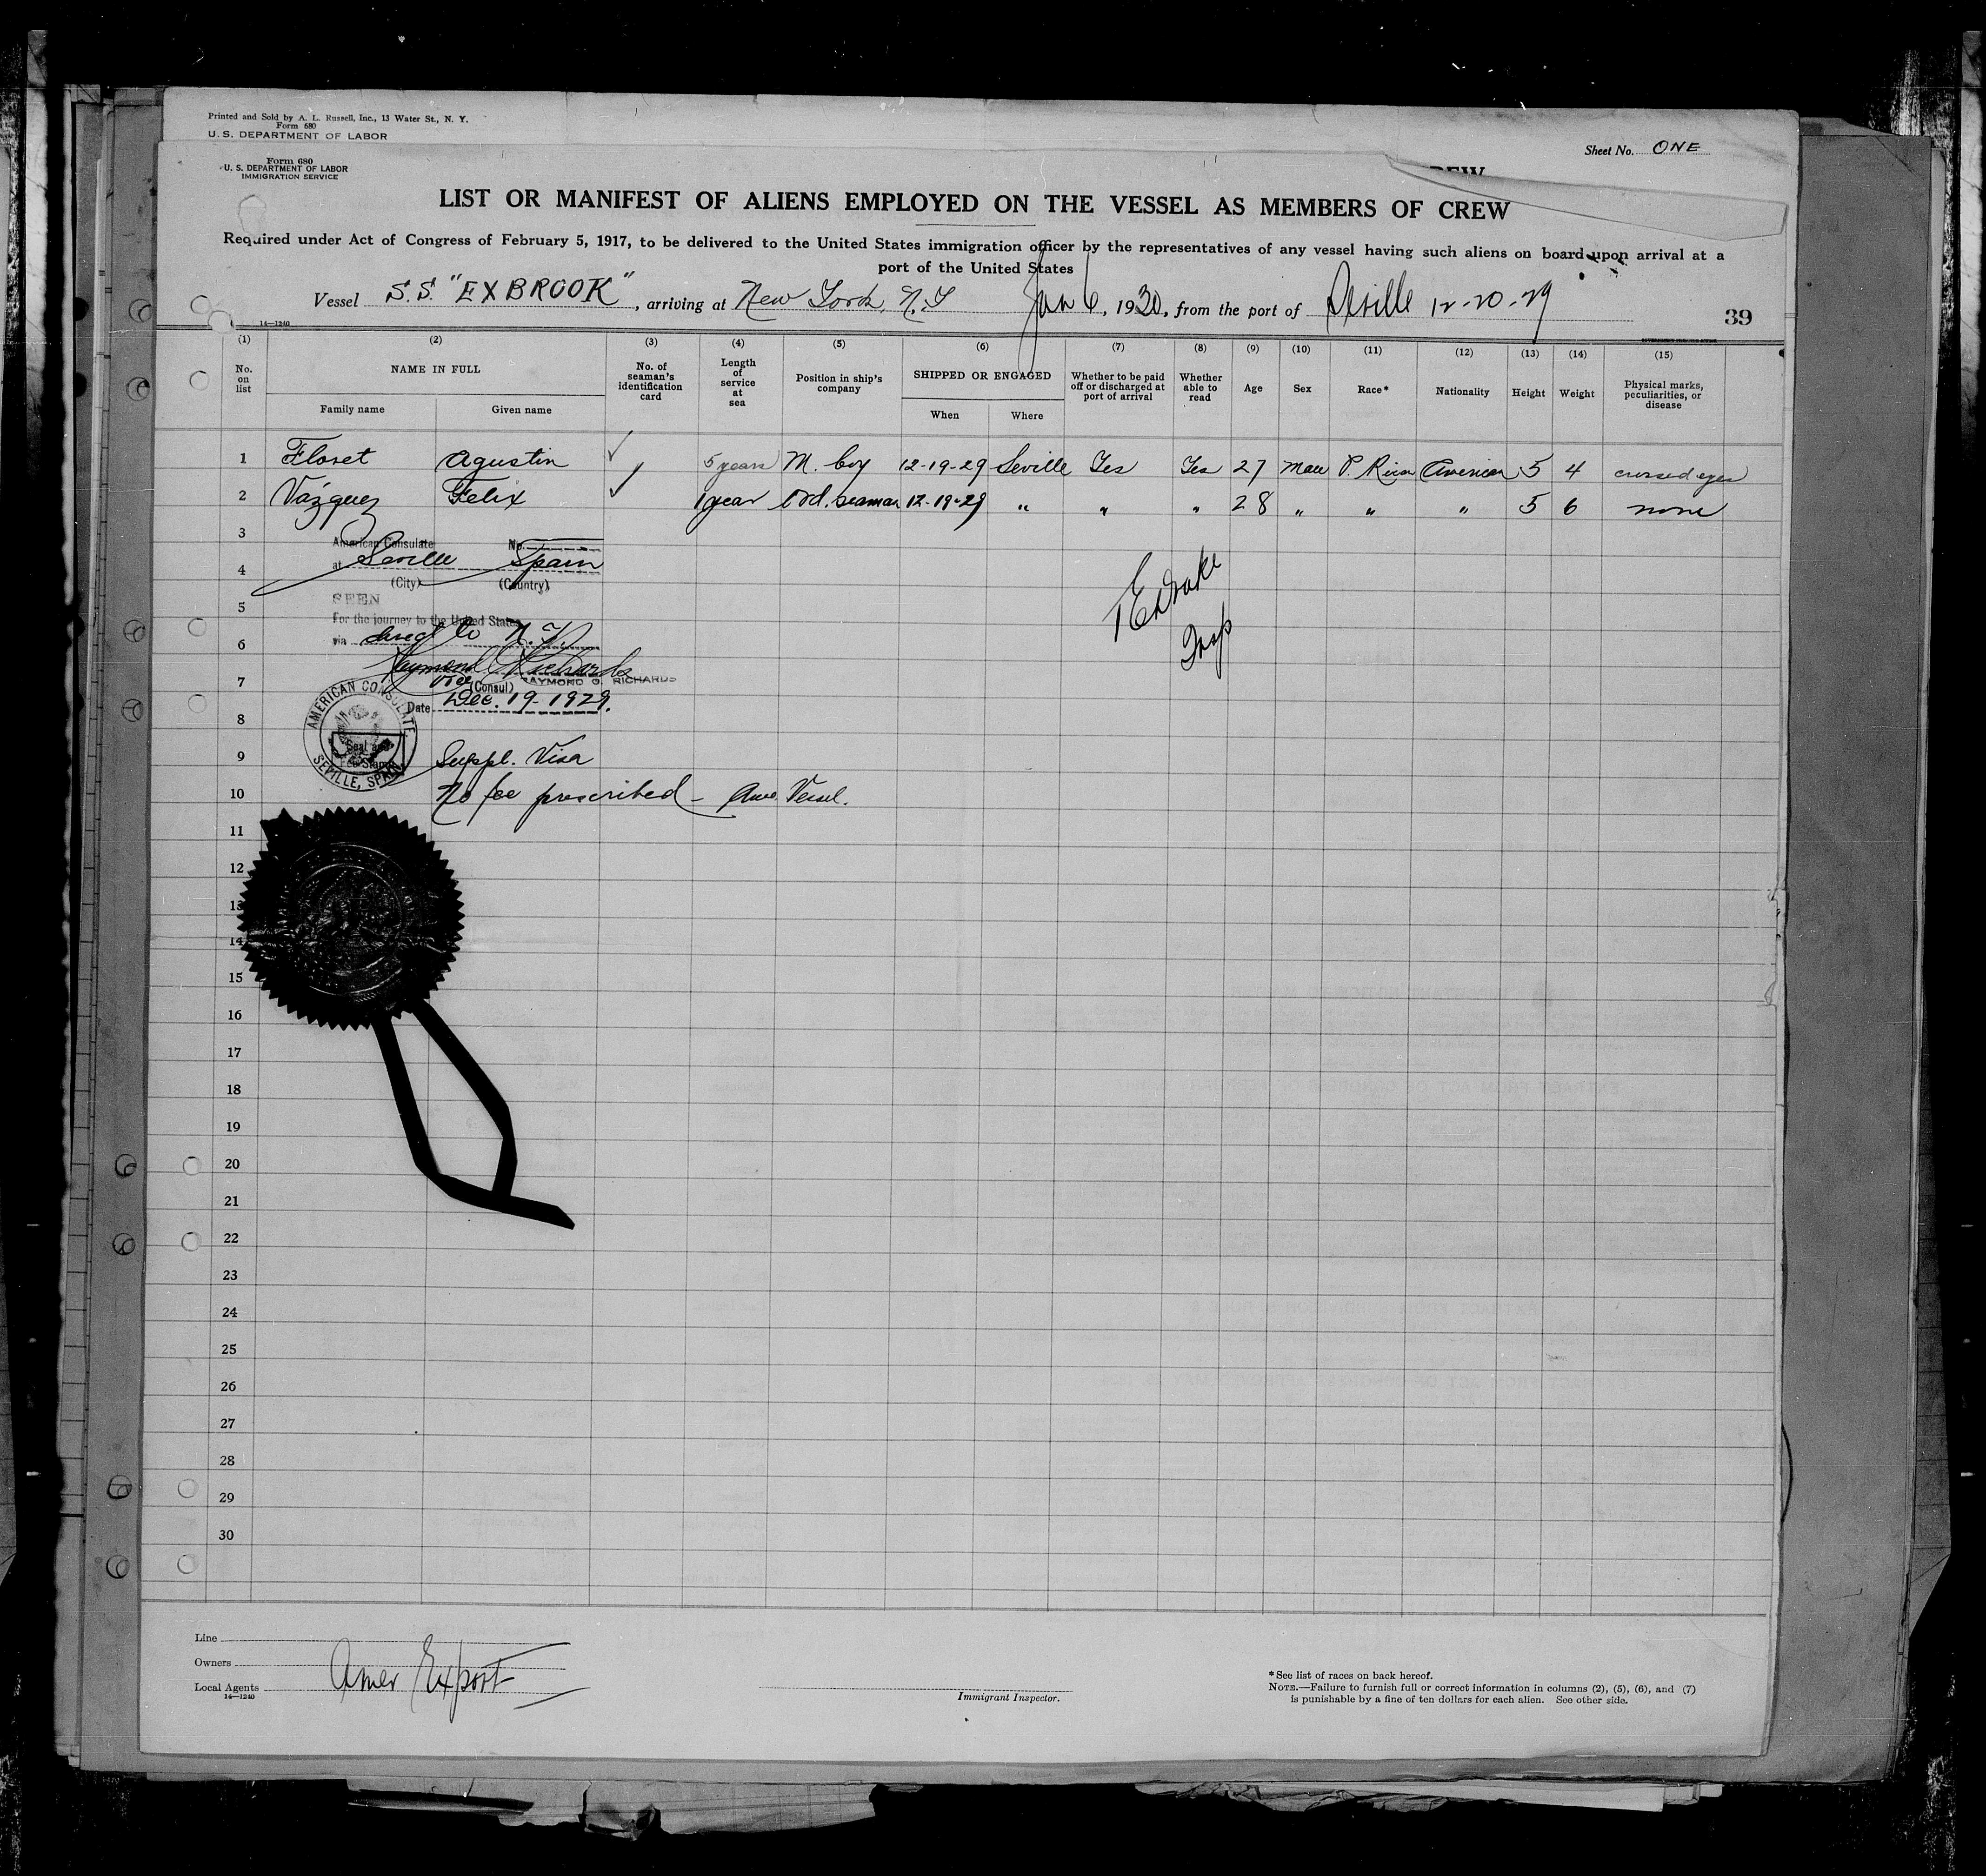 Printed and Sold by A. L. Russell, Inc., 13 Water St., N. Y.
Form 680
U. S. DEPARTMENT OF LABOR
Sheet No. ONE
Form 680
U. S. DEPARTMENT OF LABOR
IMMIGRATION SERVICE
LIST OR MANIFEST OF ALIENS EMPLOYED ON THE VESSEL AS MEMBERS OF CREW
Required under Act of Congress of February 5, 1917, to be delivered to the United States immigration officer by the representatives of any vessel having such aliens on board upon arrival at a
port of the United States
Vessel S.S. "EXBROOK", arriving at New York, N.Y Jan 6, 1930, from the port of Seville 12-20-29
14—1240
39
(1) (2) (3) (4) (5) (6) (7) (8) (9) (10) (11) (12) (13) (14) (15)
No. on list NAME IN FULL Family name Given name No. of seaman's identification card Length of service at sea Position in ship's company SHIPPED OR ENGAGED When Where Whether to be paid off or discharged at port of arrival Whether able to read Age Sex Race* Nationality Height Weight Physical marks, peculiarities, or disease
1 Floret Agustin ✓ 5 years M. boy 12-19-29 Seville Yes Yes 27 Male P. Rican American 5 4 crossed eyes
2 Vázquez Felix ✓ 1 year Ord. seaman 12-19-29 " " " 28 " " " 5 6 none
3
American Consulate No.
at Seville Spain
4
(City) (Country)
SEEN
5
For the journey to the United States
via direct to N.Y.
6
Raymond O Richards
Vice (Consul) RAYMOND O. RICHARDS
7
Date Dec. 19-1929.
AMERICAN CONSULATE
SEVILLE, SPAIN
Seal and
Fee Stamp
8
9 Suppl. Visa
10 No fee prescribed - Ame. Vessel.
Drake
Insp
11
12
13
14
15
16
17
18
19
20
21
22
23
24
25
26
27
28
29
30
Line
Owners
Local Agents
Amer Export
14—1240
Immigrant Inspector.
*See list of races on back hereof.
NOTE.—Failure to furnish full or correct information in columns (2), (5), (6), and (7)
is punishable by a fine of ten dollars for each alien. See other side.